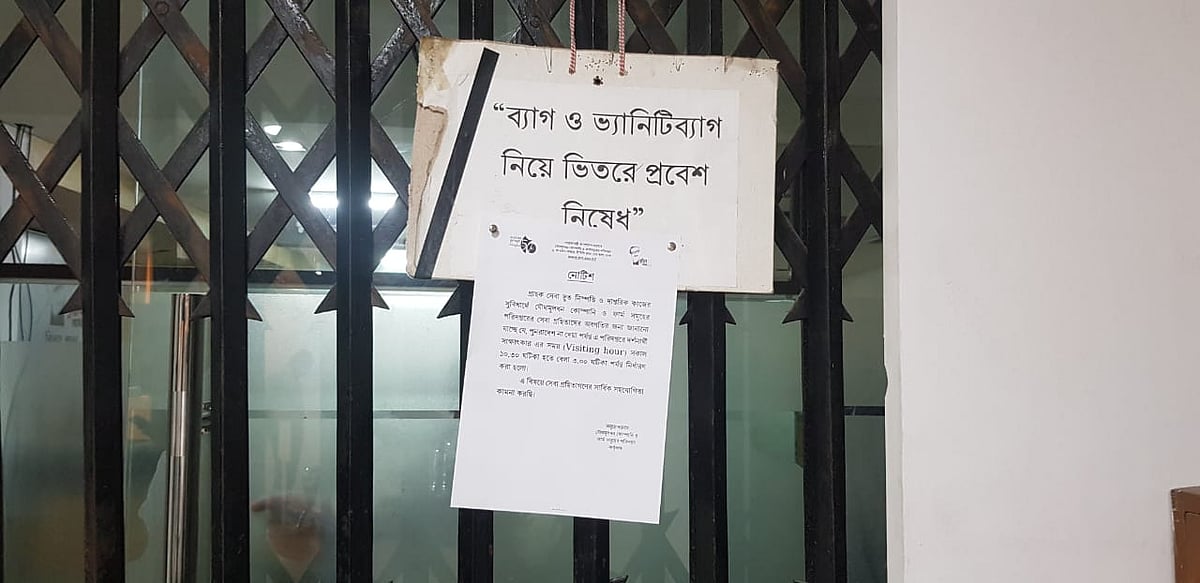 “ব্যাগ ও ভ্যানিটিব্যাগ
নিয়ে ভিতরে প্রবেশ
নিষেধ”
নোটিশ
গ্রাহক সেবা দ্রুত নিষ্পত্তি ও দাপ্তরিক কাজের
সুবিধার্থে যৌথমূলধন কোম্পানি ও ফার্ম সমূহের
পরিদপ্তরের সেবা গ্রহিতাদের অবগতির জন্য জানানো
যাচ্ছে যে, পুনরাদেশ না দেয়া পর্যন্ত এ পরিদপ্তরে দর্শনার্থী
সাক্ষাৎকার এর সময় (Visiting hour) সকাল
১০.৩০ ঘটিকা হতে বেলা ৩.০০ ঘটিকা পর্যন্ত নির্ধারণ
করা হলো।
এ বিষয়ে সেবা গ্রহিতাগণের সার্বিক সহযোগিতা
কামনা করছি।
যৌথমূলধন কোম্পানি ও
ফার্ম সমূহের পরিদপ্তর